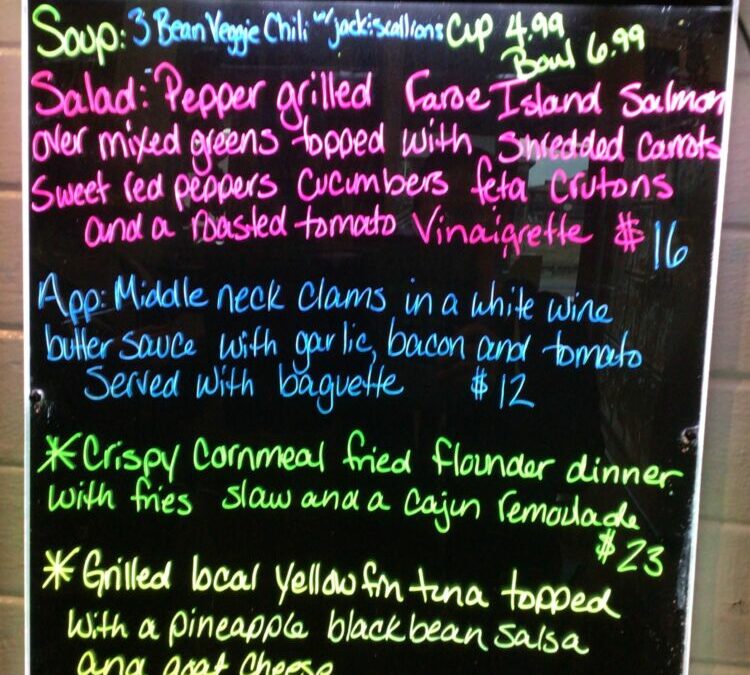 Soup: 3 Bean Veggie Chili w/ jack & scallions Cup 4.99
Bowl 6.99
Salad: Pepper grilled Faroe Island Salmon
over mixed greens topped with Shredded Carrots
Sweet red peppers Cucumbers feta Crutons
and a roasted tomato Vinaigrette $16
App: Middle neck Clams in a white wine
butter sauce with garlic, bacon and tomato
Served with baguette $12
*Crispy Cornmeal fried flounder dinner
with fries slaw and a Cajun remoulade
$23
*Grilled local Yellowfin tuna topped
with a pineapple blackbean Salsa
and goat cheese